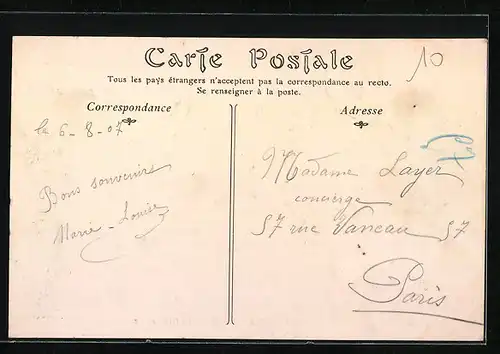 Carte Postale
Tous les pays étrangers n'acceptent pas la correspondance au recto.
Se renseigner à la poste.
Correspondance
Adresse
10
le 6-8-07
Bons souvenirs
Marie-Louise
Madame Layer
concierge
57 rue Vaneau 57
Paris